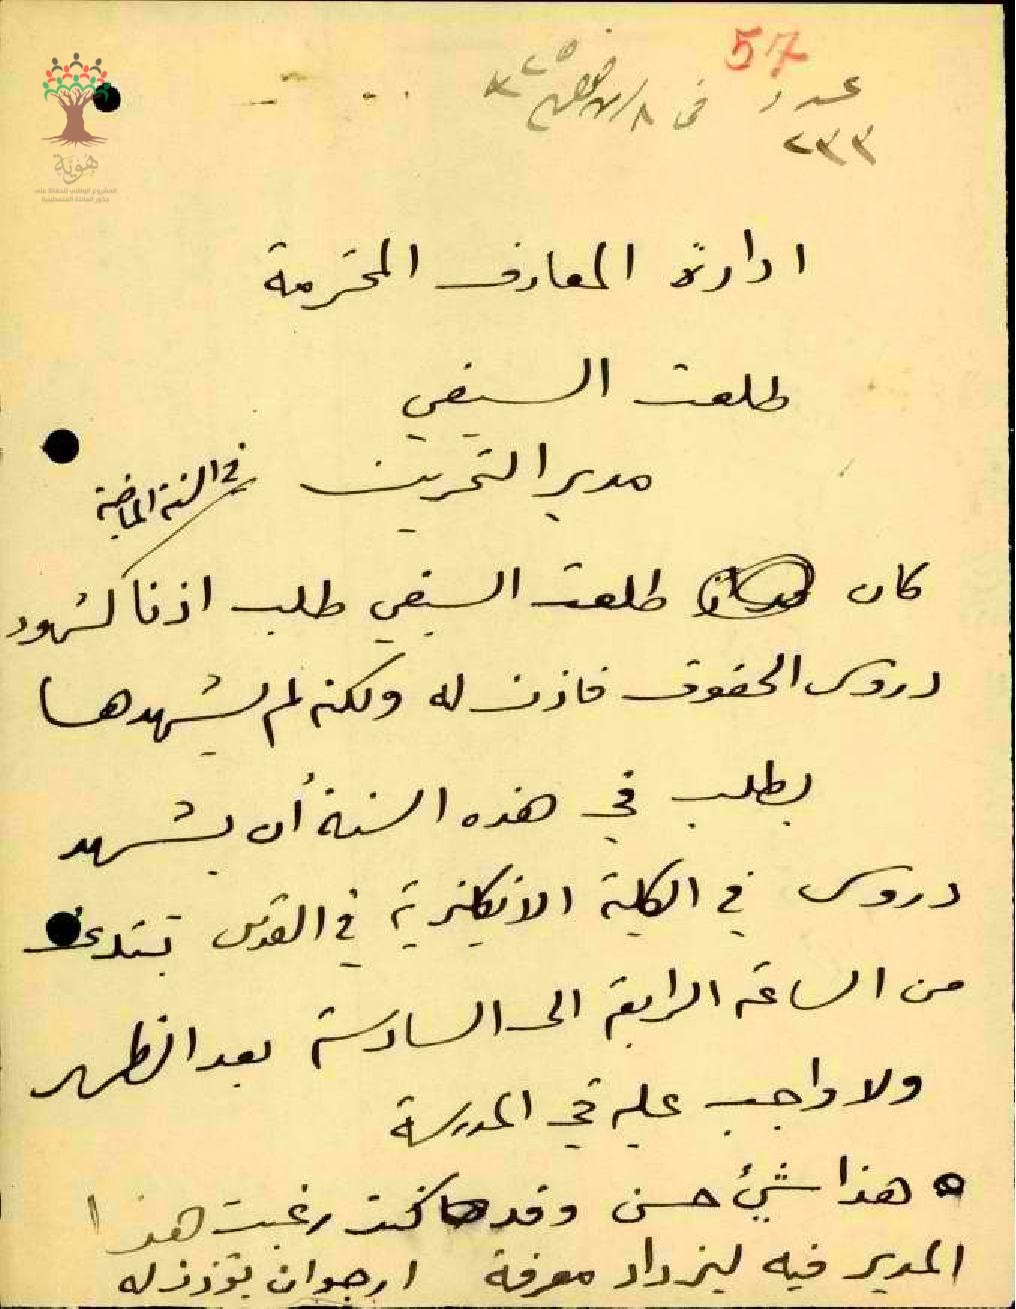 57
عدد
٢٣٣
في
هوية
المشروع الوطني للحفاظ على
جذور العائلة الفلسطينية
ادارة المعارف المحترمة
طلعت السيفي
مدير التمرين
في السنة الماضية
كان طلعت السيفي طلب اذنا لشهود
دروس الحقوق فاذن له ولكنه لم يشهدها
يطلب في هذه السنة أن يشهد
دروس في الكلية الانكليزية في القدس تبتدئ
من الساعة الرابعة الى السادسة بعد الظهر
ولا واجب عليه في المدرسة
هذا شيء حسن وقد كنت رغبت هذا
المدير فيه ليزداد معرفة ارجو ان تؤذن له